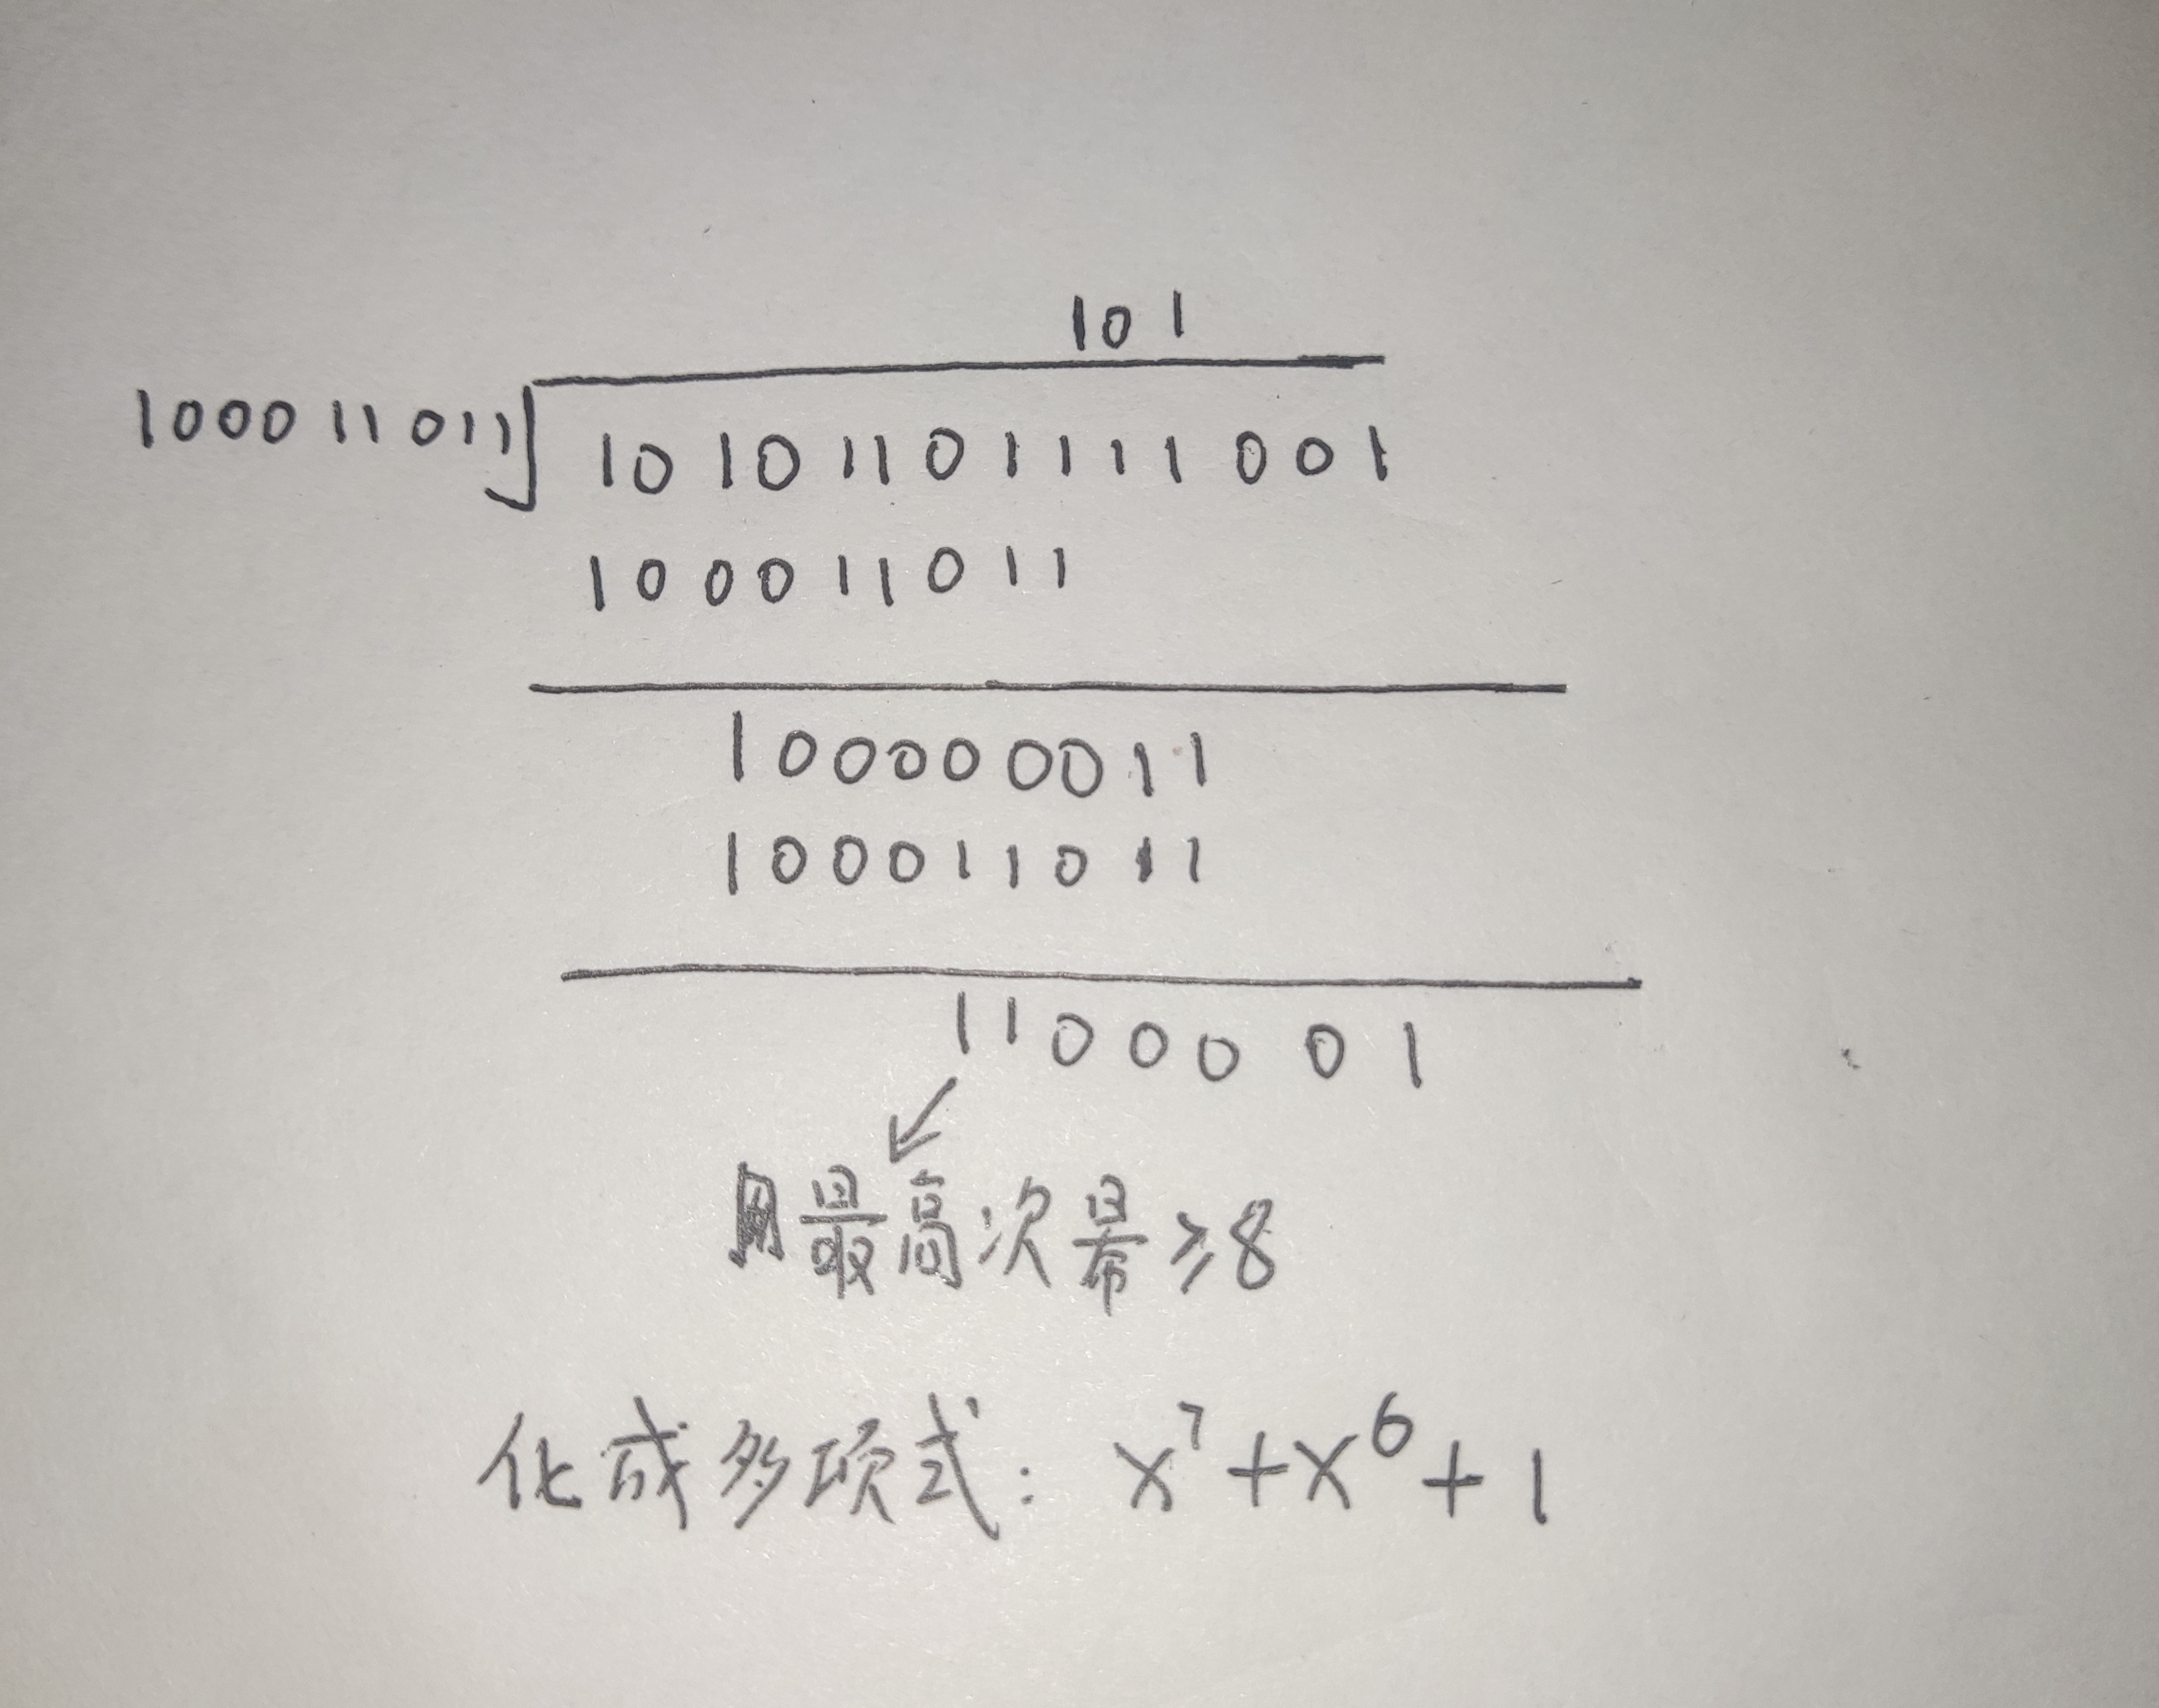 101
100011011
10101101111001
100011011
100000011
100011011
1100001
最高次幂≥8
化成多项式: x⁷+x⁶+1